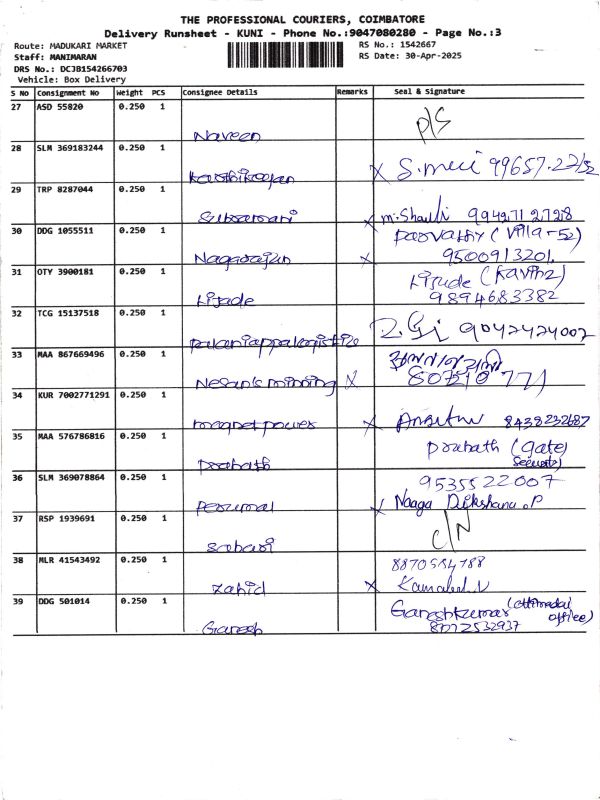 THE PROFESSIONAL COURIERS, COIMBATORE
Delivery Runsheet - KUNI - Phone No.:9047080280 - Page No.:3
Route: MADUKARI MARKET
RS No.: 1542667
Staff: MANIMARAN
RS Date: 30-Apr-2025
DRS No.: DCJB154266703
Vehicle: Box Delivery
S No Consignment No Weight PCS Consignee Details Remarks Seal & Signature
27 ASD 55820 0.250 1
Naveen P/S
28 SLM 369183244 0.250 1
Karthikeyan X S.
29 TRP 8287044 0.250 1
Subramani X 9942712728
30 DDG 1055511 0.250 1 Parvathy (Villa-52)
Nagarajun 9500913201
31 OTY 3900181 0.250 1
Lijade 9894683382
32 TCG 15137518 0.250 1
9042424007
33 MAA 867669496 0.250 1
Nesan's mining X
34 KUR 7002771291 0.250 1
magnet power X 8438232687
35 MAA 576786816 0.250 1 Prabath (gate
Prabath Security)
36 SLM 369078864 0.250 1 9535522007
Perumal X Naaga Dikshana.P
37 RSP 1939691 0.250 1 C/N
Sabari
38 MLR 41543492 0.250 1
Zahid X
39 DDG 501014 0.250 1 Ganeshkumar office)
Ganesh 8072532937